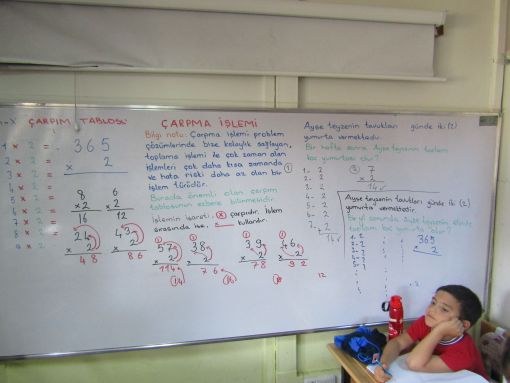 ÇARPIM TABLOSU
1 x 2 =
2 x 2 =
3 x 2 =
4 x 2 =
5 x 2 =
6 x 2 =
7 x 2 =
8 x 2 =
9 x 2 =
365
x 2
8
x2
16
6
x2
12
24
x 2
48
43
x 2
86
ÇARPMA İŞLEMİ
Bilgi notu: Çarpma işlemi problem
çözümlerinde bize kolaylık sağlayan,
toplama işlemi ile çok zaman alan
işlemleri çok daha kısa zamanda
ve hata riski daha az olan bir
işlem türüdür.
Burada önemli olan çarpım
tablosunun ezbere bilinmesidir.
İşlemin işareti, x çarpıdır. İşlem
sırasında ise, kullanılır.
57
x 2
114
38
x 2
76
39
x 2
78
46
x 2
92
12
Ayşe teyzenin tavukları günde iki (2)
yumurta vermektedir.
Bir hafta sonra Ayşe teyzenin toplam
kaç yumurtası olur?
1- 2
2- 2
3- 2
4- 2
5- 2
6- 2
7- 2
14
7
x 2
14
Ayşe teyzenin tavukları günde iki (2)
yumurta vermektedir.
Bir yıl sonunda Ayşe teyzenin elinde
toplam kaç yumurta olur?
1- 2
2- 2
3- 2
4- 2
5- 2
365
x 2